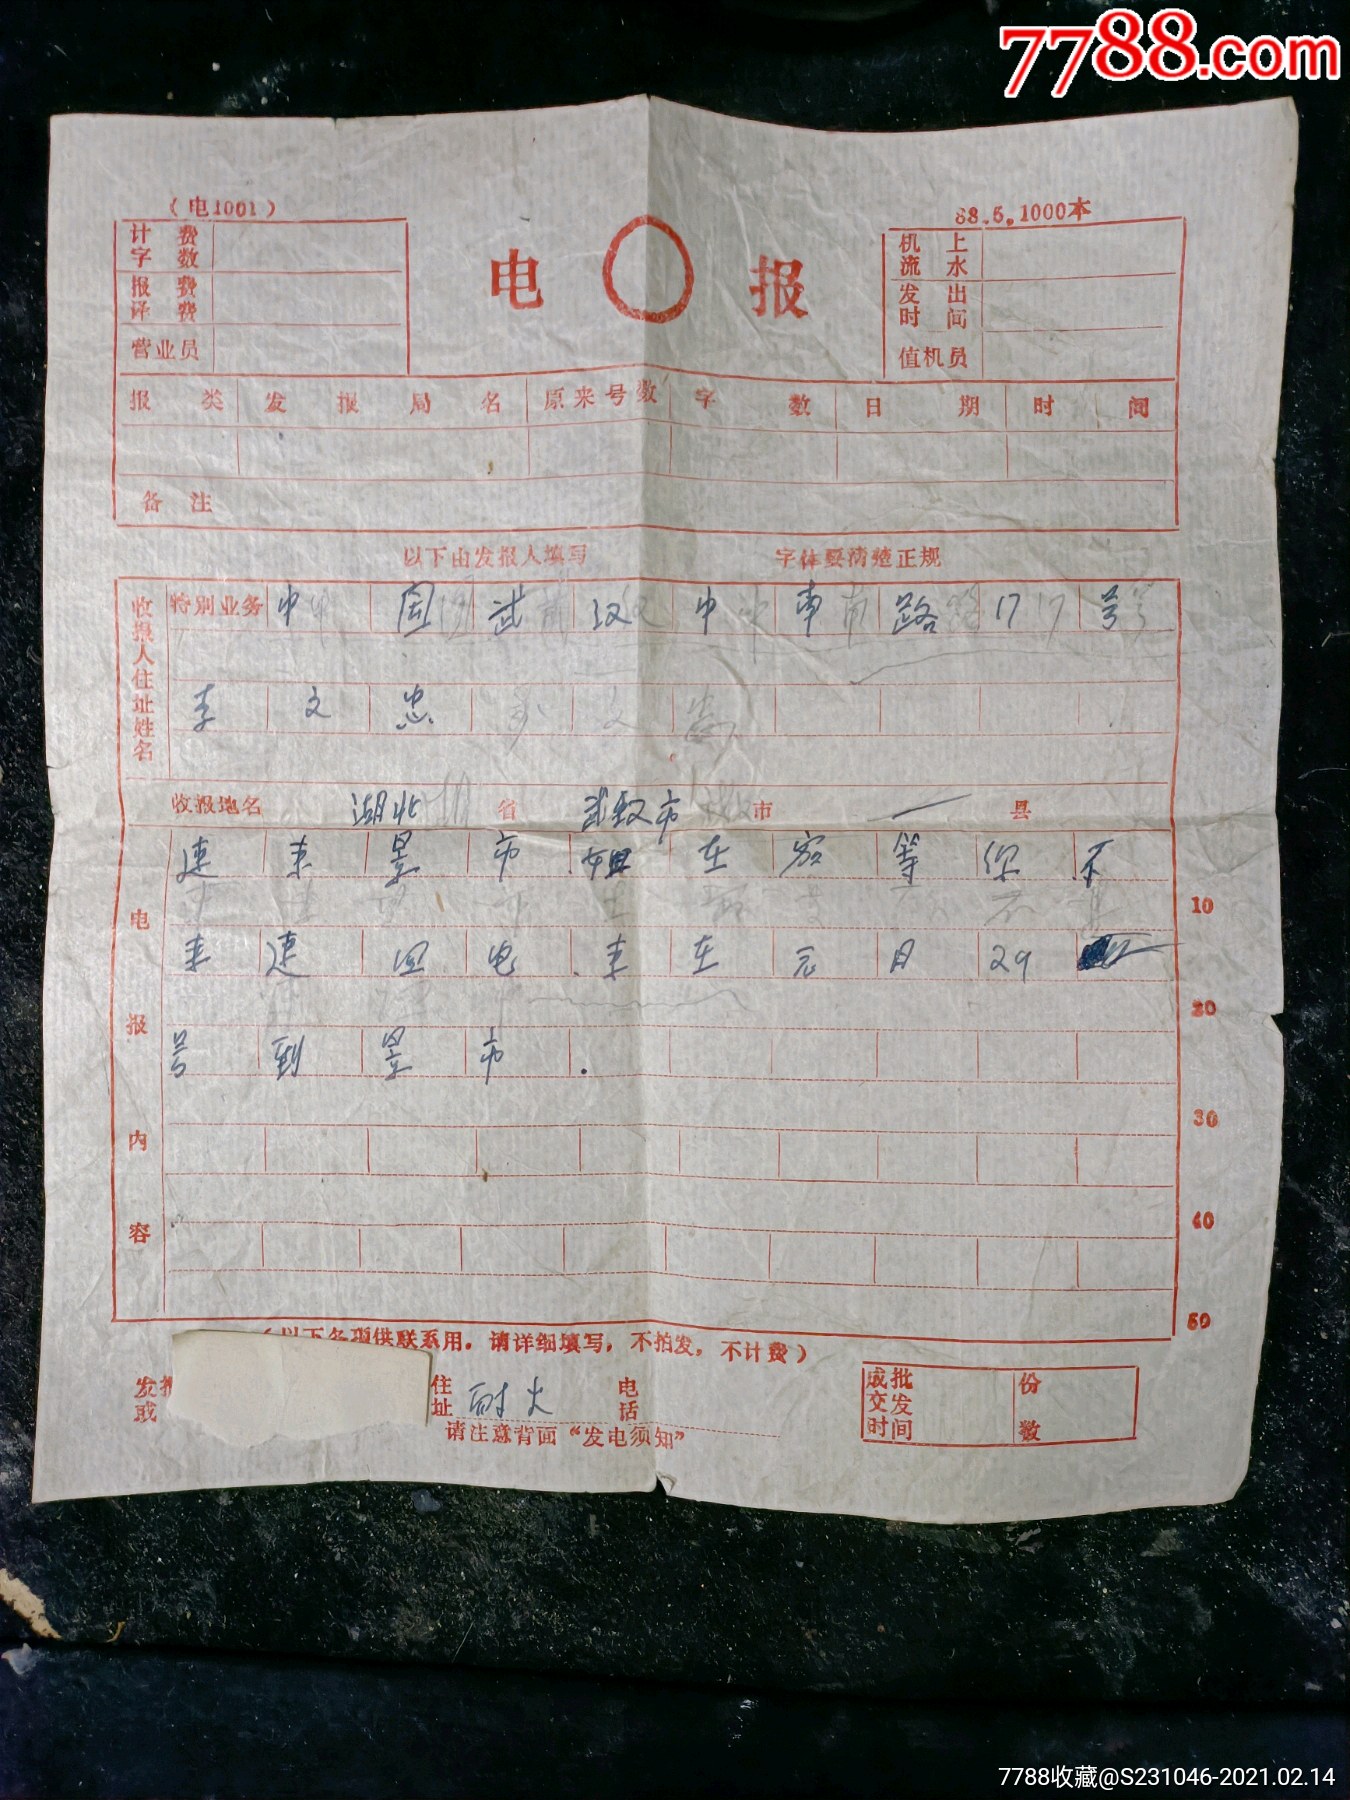 7788.com
（电1001）
88.5.1000本
计费字数
报费译费
营业员
电 报
机上流水
发出时间
值机员
报类 发报局名 原来号数 字数 日期 时间
备注
以下由发报人填写 字体要清楚正规
收报人住址姓名
特别业务 中国武汉中南路17号
李文忠
收报地名 湖北省 武汉市市 一 县
电报内容
速来昱市 姐在家等你不
10
来速回电.来在元月29
20
号到昱市.
30
40
50
（以下各项供联系用，请详细填写，不拍发，不计费）
发报 或
住址 耐火 电话
请注意背面“发电须知”
成批交发时间 份数
7788收藏@S231046-2021.02.14